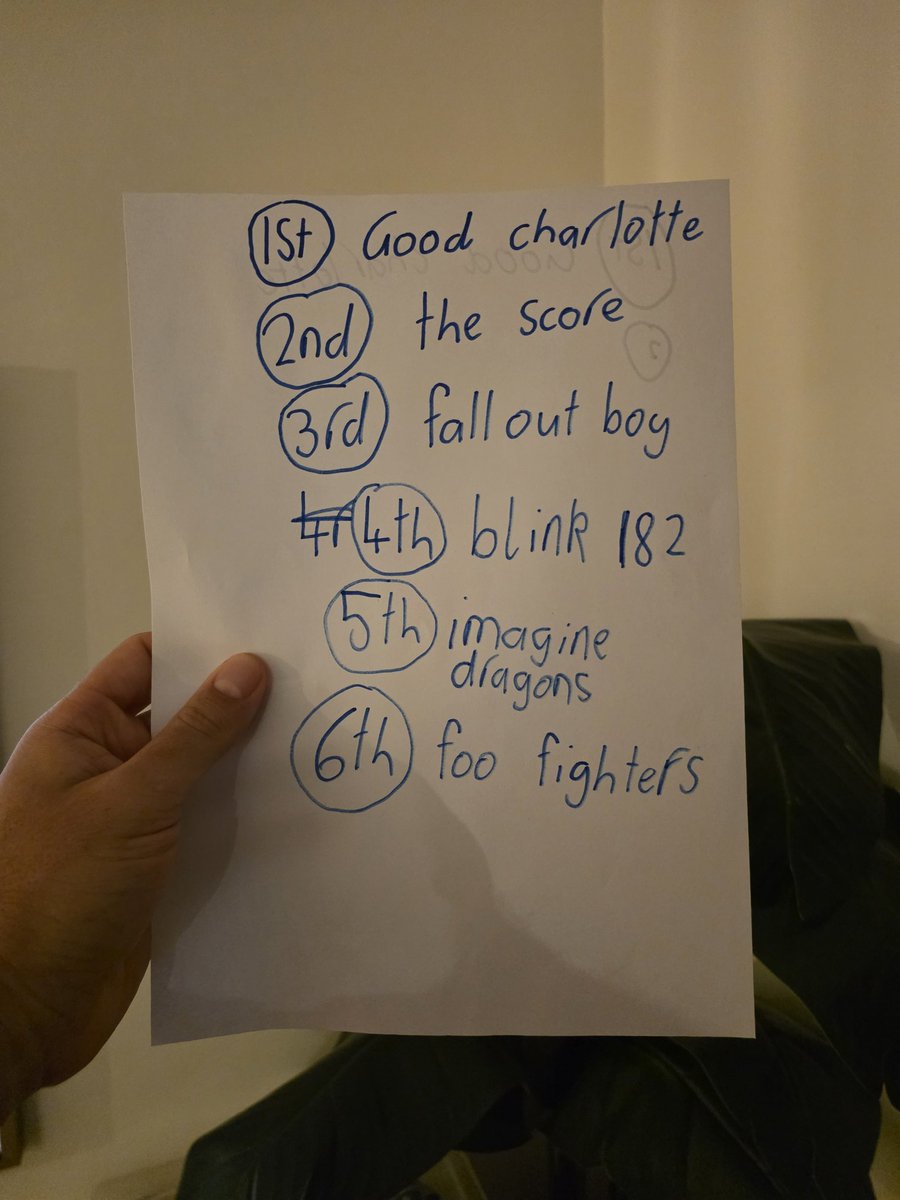 1st Good charlotte
2nd the score
3rd fall out boy
4th blink 182
5th imagine
dragons
6th foo fighters